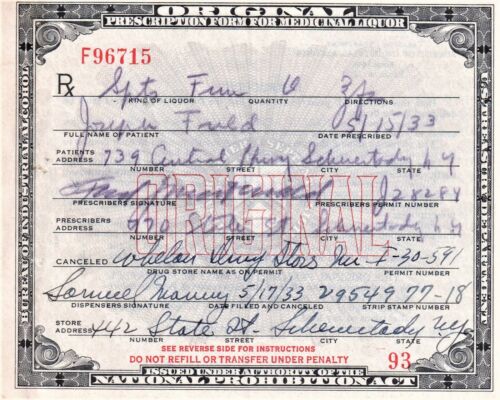 ORIGINAL
PRESCRIPTION FORM FOR MEDICINAL LIQUOR
F96715
Rx Spts
KIND OF LIQUOR QUANTITY DIRECTIONS
Joseph 5/15/33
FULL NAME OF PATIENT DATE PRESCRIBED
PATIENTS ADDRESS 739 Central Pkwy Schenectady N Y
NUMBER STREET CITY STATE
PRESCRIBERS SIGNATURE PRESCRIBERS PERMIT NUMBER
PRESCRIBERS ADDRESS State St Schenectady N Y
NUMBER STREET CITY STATE
ORIGINAL
CANCELED Whelan Drug Stores Inc
DRUG STORE NAME AS ON PERMIT PERMIT NUMBER
Samuel 5/17/33 29549 77-18
DISPENSERS SIGNATURE DATE FILLED AND CANCELED STRIP STAMP NUMBER
STORE ADDRESS 442 State St. Schenectady N.Y.
NUMBER STREET CITY STATE
SEE REVERSE SIDE FOR INSTRUCTIONS
DO NOT REFILL OR TRANSFER UNDER PENALTY
93
ISSUED UNDER AUTHORITY OF THE
NATIONAL PROHIBITION ACT
BUREAU OF INDUSTRIAL ALCOHOL
U.S. TREASURY DEPARTMENT